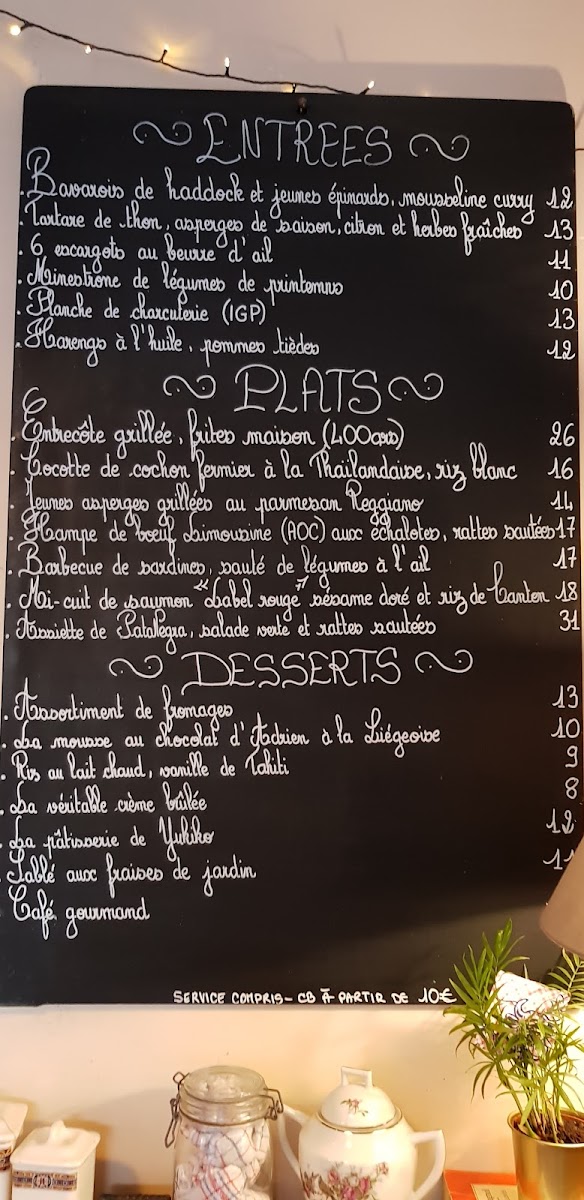 ENTREES
. Bavarois de haddock et jeunes épinards, mousseline curry 12
. Tartare de thon, asperges de saison, citron et herbes fraîches 13
. 6 escargots au beurre d'ail 11
. Minestrone de légumes de printemps 10
. Planche de charcuterie (IGP) 13
. Harengs à l'huile, pommes tièdes 12
PLATS
. Entrecôte grillée, frites maison (400grs) 26
. Cocotte de cochon fermier à la Thaïlandaise, riz blanc 16
. Jeunes asperges grillées au parmesan Reggiano 14
. Hampe de boeuf Limousine (AOC) aux échalotes, rattes sautées 17
. Barbecue de sardines, sauté de légumes à l'ail 17
. Mi-cuit de saumon "Label rouge" sésame doré et riz de Canton 18
. Assiette de PataNegra, salade verte et rattes sautées 31
DESSERTS
. Assortiment de fromages 13
. La mousse au chocolat d'Adrien à la Liégeoise 10
. Riz au lait chaud, vanille de Tahiti 9
. La véritable crème brûlée 8
. La pâtisserie de Yukiko 12
. Sablé aux fraises de jardin 11
. Café gourmand
SERVICE COMPRIS - CB À PARTIR DE 10€